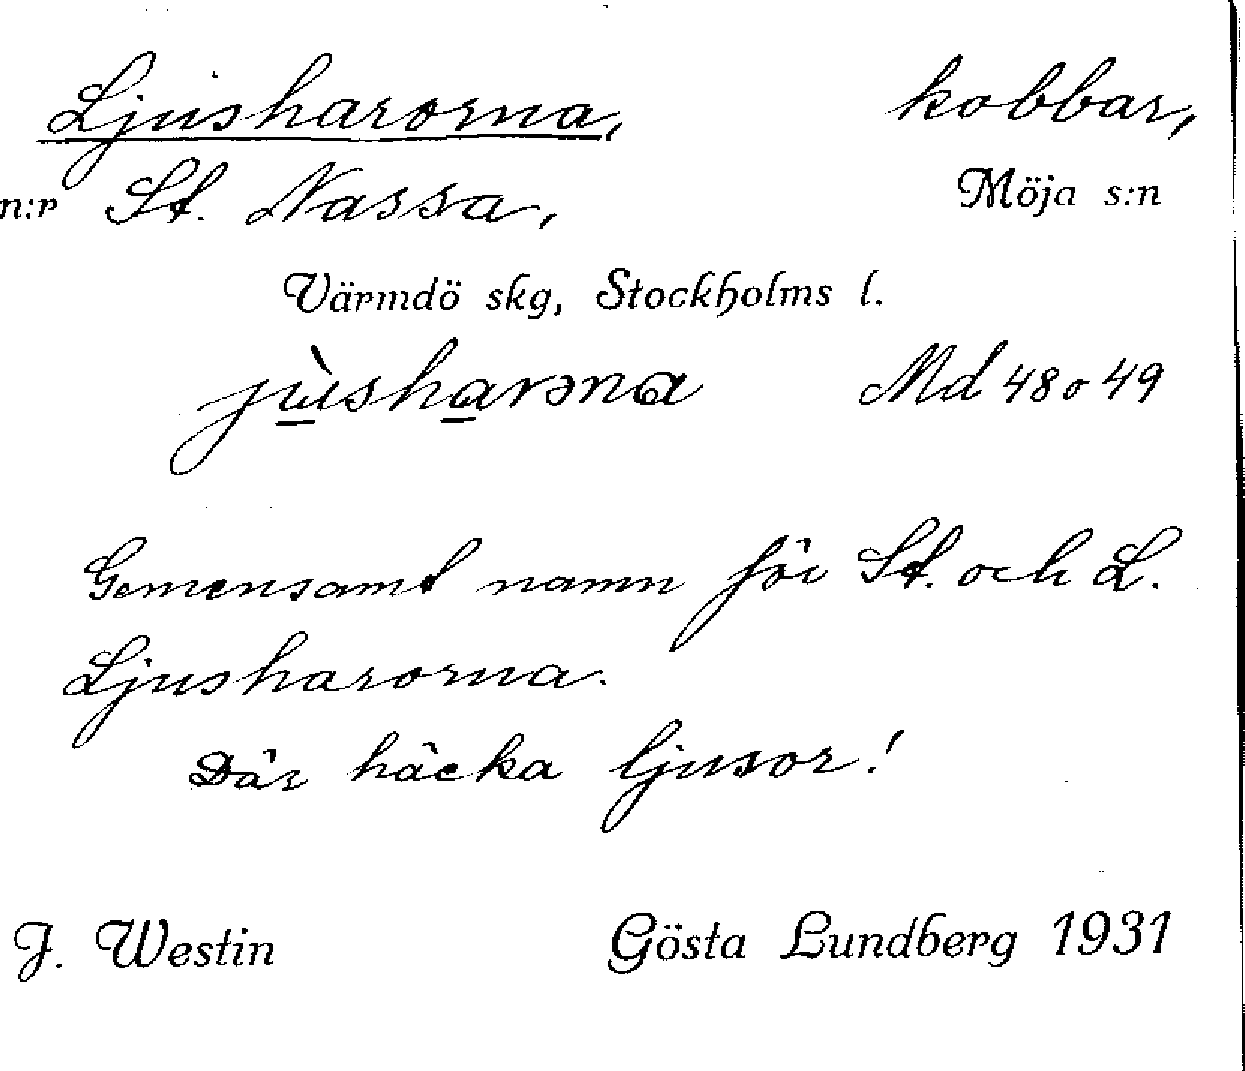 Ljusharorna, kobbar,
n:r St. Nassa, Möja s:n
Värmdö skg, Stockholms l.
jùsharəna Md 48 o 49
Gemensamt namn för St. och L.
Ljusharorna.
Där häcka ljusor!
J. Westin Gösta Lundberg 1931